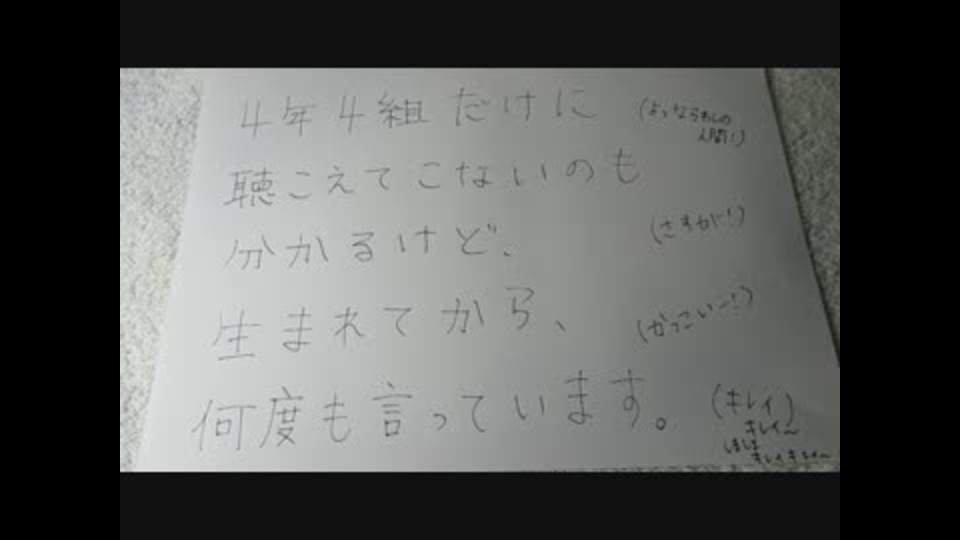 4年4組だけに
(よっならわしの
人間!)
聴こえてこないのも
分かるけど、
(さすが!)
生まれてから、
(かっこいー!)
何度も言っています。
(キレイ)
キレイ〜
しましま
キレイキレイ〜